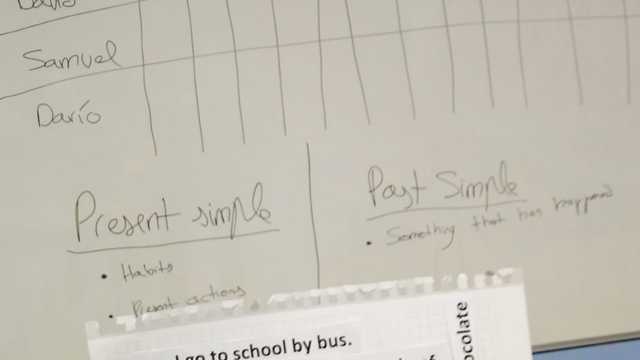 Samuel
Darío
Present simple
• Habits
• Present actions
Past Simple
• Something that has happened
go to school by bus.